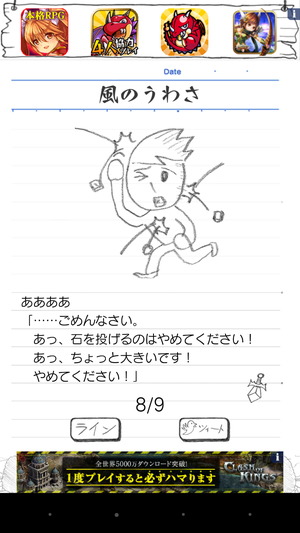 本格RPG
4人協力プレイ
Date
風のうわさ
ああああ
「……ごめんなさい。
あっ、石を投げるのはやめてください！
あっ、ちょっと大きいです！
やめてください！」
8/9
ライン
ツイート
全世界5000万ダウンロード突破!
1度プレイすると必ずハマります
CLASH OF KINGS